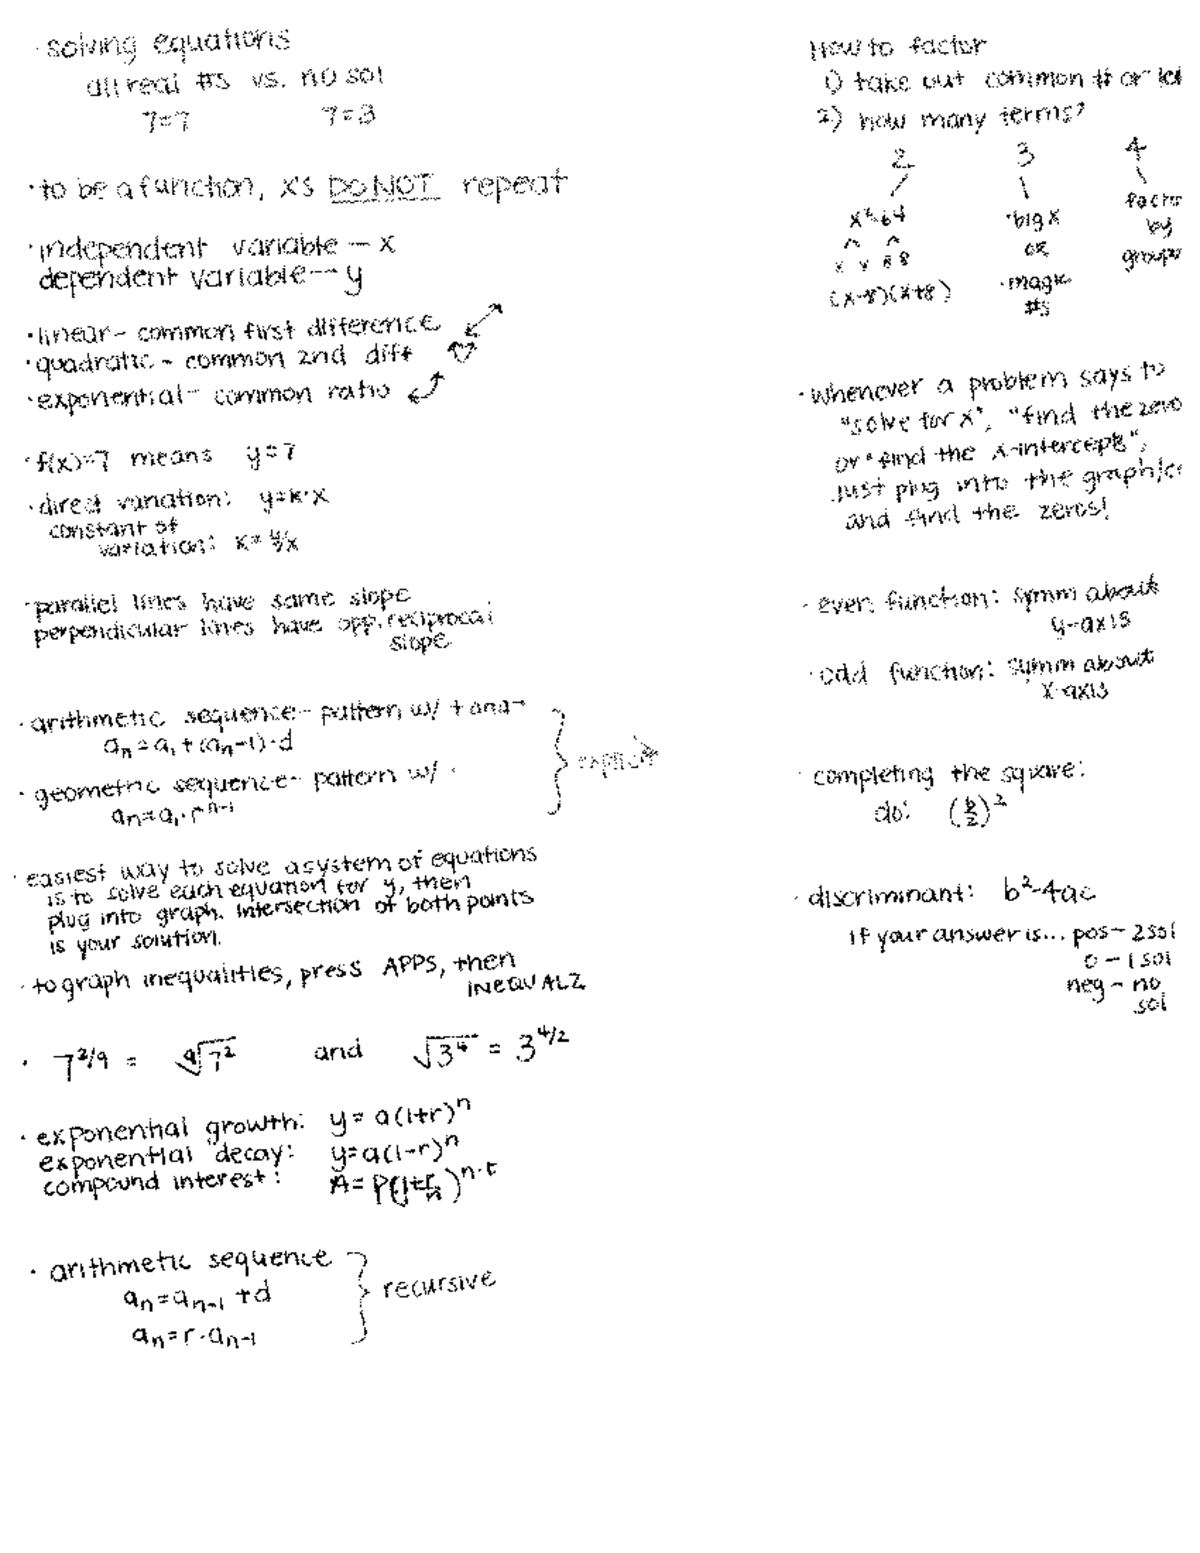 · solving equations
all real #s vs. no sol
7=7 7=3
· to be a function, x's DO NOT repeat
· independent variable — x
dependent variable — y
· linear - common first difference
· quadratic - common 2nd diff
· exponential - common ratio
· f(x)=7 means y=7
· direct variation: y=k·x
constant of
variation: k=y/x
· parallel lines have same slope
perpendicular lines have opp. reciprocal
slope
· arithmetic sequence - pattern w/ + and -
aₙ=a₁+(aₙ-1)·d
· geometric sequence - pattern w/ ·
aₙ=a₁·rⁿ⁻¹
explicit
· easiest way to solve a system of equations
is to solve each equation for y, then
plug into graph. Intersection of both points
is your solution.
· to graph inequalities, press APPS, then
INEQUALZ
· 7^2/9 = ⁹√7² and √3⁴ = 3^4/2
· exponential growth: y=a(1+r)ⁿ
exponential decay: y=a(1-r)ⁿ
compound interest: A=P(1+r/n)^n·t
· arithmetic sequence
aₙ=aₙ₋₁+d
aₙ=r·aₙ₋₁
recursive
How to factor
1) take out common # or
2) how many terms?
2 3 4
x²-64 · big x factor
x x 8 8 or by
(x-8)(x+8) · magic
#s
· Whenever a problem says to
"solve for x", "find the zero
or "find the x-intercepts",
just plug into the graph/c
and find the zeros!
· even function: symm about
y-axis
· odd function: symm about
x-axis
· completing the square:
do: (b/2)²
· discriminant: b²-4ac
if your answer is... pos - 2 sol
0 - 1 sol
neg - no
sol